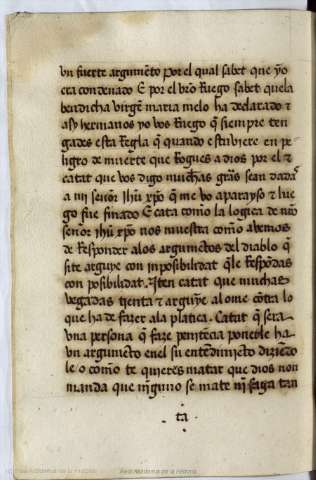 vn fuerte argumẽto por el qual sabet que yo
era condenado E por el vr̃o Ruego sabet quela
bendicha virgẽ maria melo ha declarado τ
asy hermanos yo vos Ruego q̃ sienpre ten
gades esta Regla q̃ quando estuviere en pe
ligro de muerte que Rogues a dios por el τ
catat que vos digo muchas grãs sean dadas
a mi señor ihũ xp̃o q̃ me vo aparayso τ lue
go fue finado E cata como la logica de nr̃o
señor ihũ xp̃o nos muestra como avemos
de Responder alos argumẽtos del diablo q̃
si te arguye con inposibilidat q̃le Respõdas
con posibilidat. Iten catat que muchas
vegadas tienta τ arguye al ome cõtra lo
que ha de fazer ala platica. Catat q̃ sera
vna persona q̃ faze penitẽcia ponerle ha
vn argumẽto enel su entẽdimiẽto diziẽdo
le o como te quieres matar que dios non
manda que ninguno se mate nĩ faga tan
ta
Real Academia de la Historia